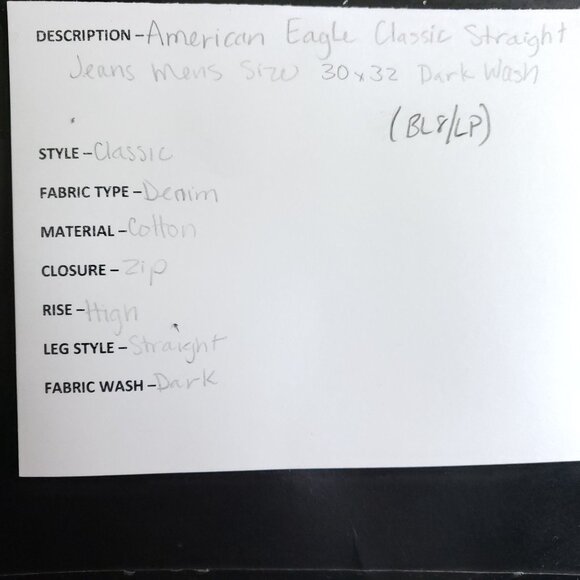 DESCRIPTION – American Eagle Classic Straight
Jeans Mens Size 30x32 Dark Wash
(BL8/LP)
STYLE – Classic
FABRIC TYPE – Denim
MATERIAL – Cotton
CLOSURE – Zip
RISE – High
LEG STYLE – Straight
FABRIC WASH – Dark